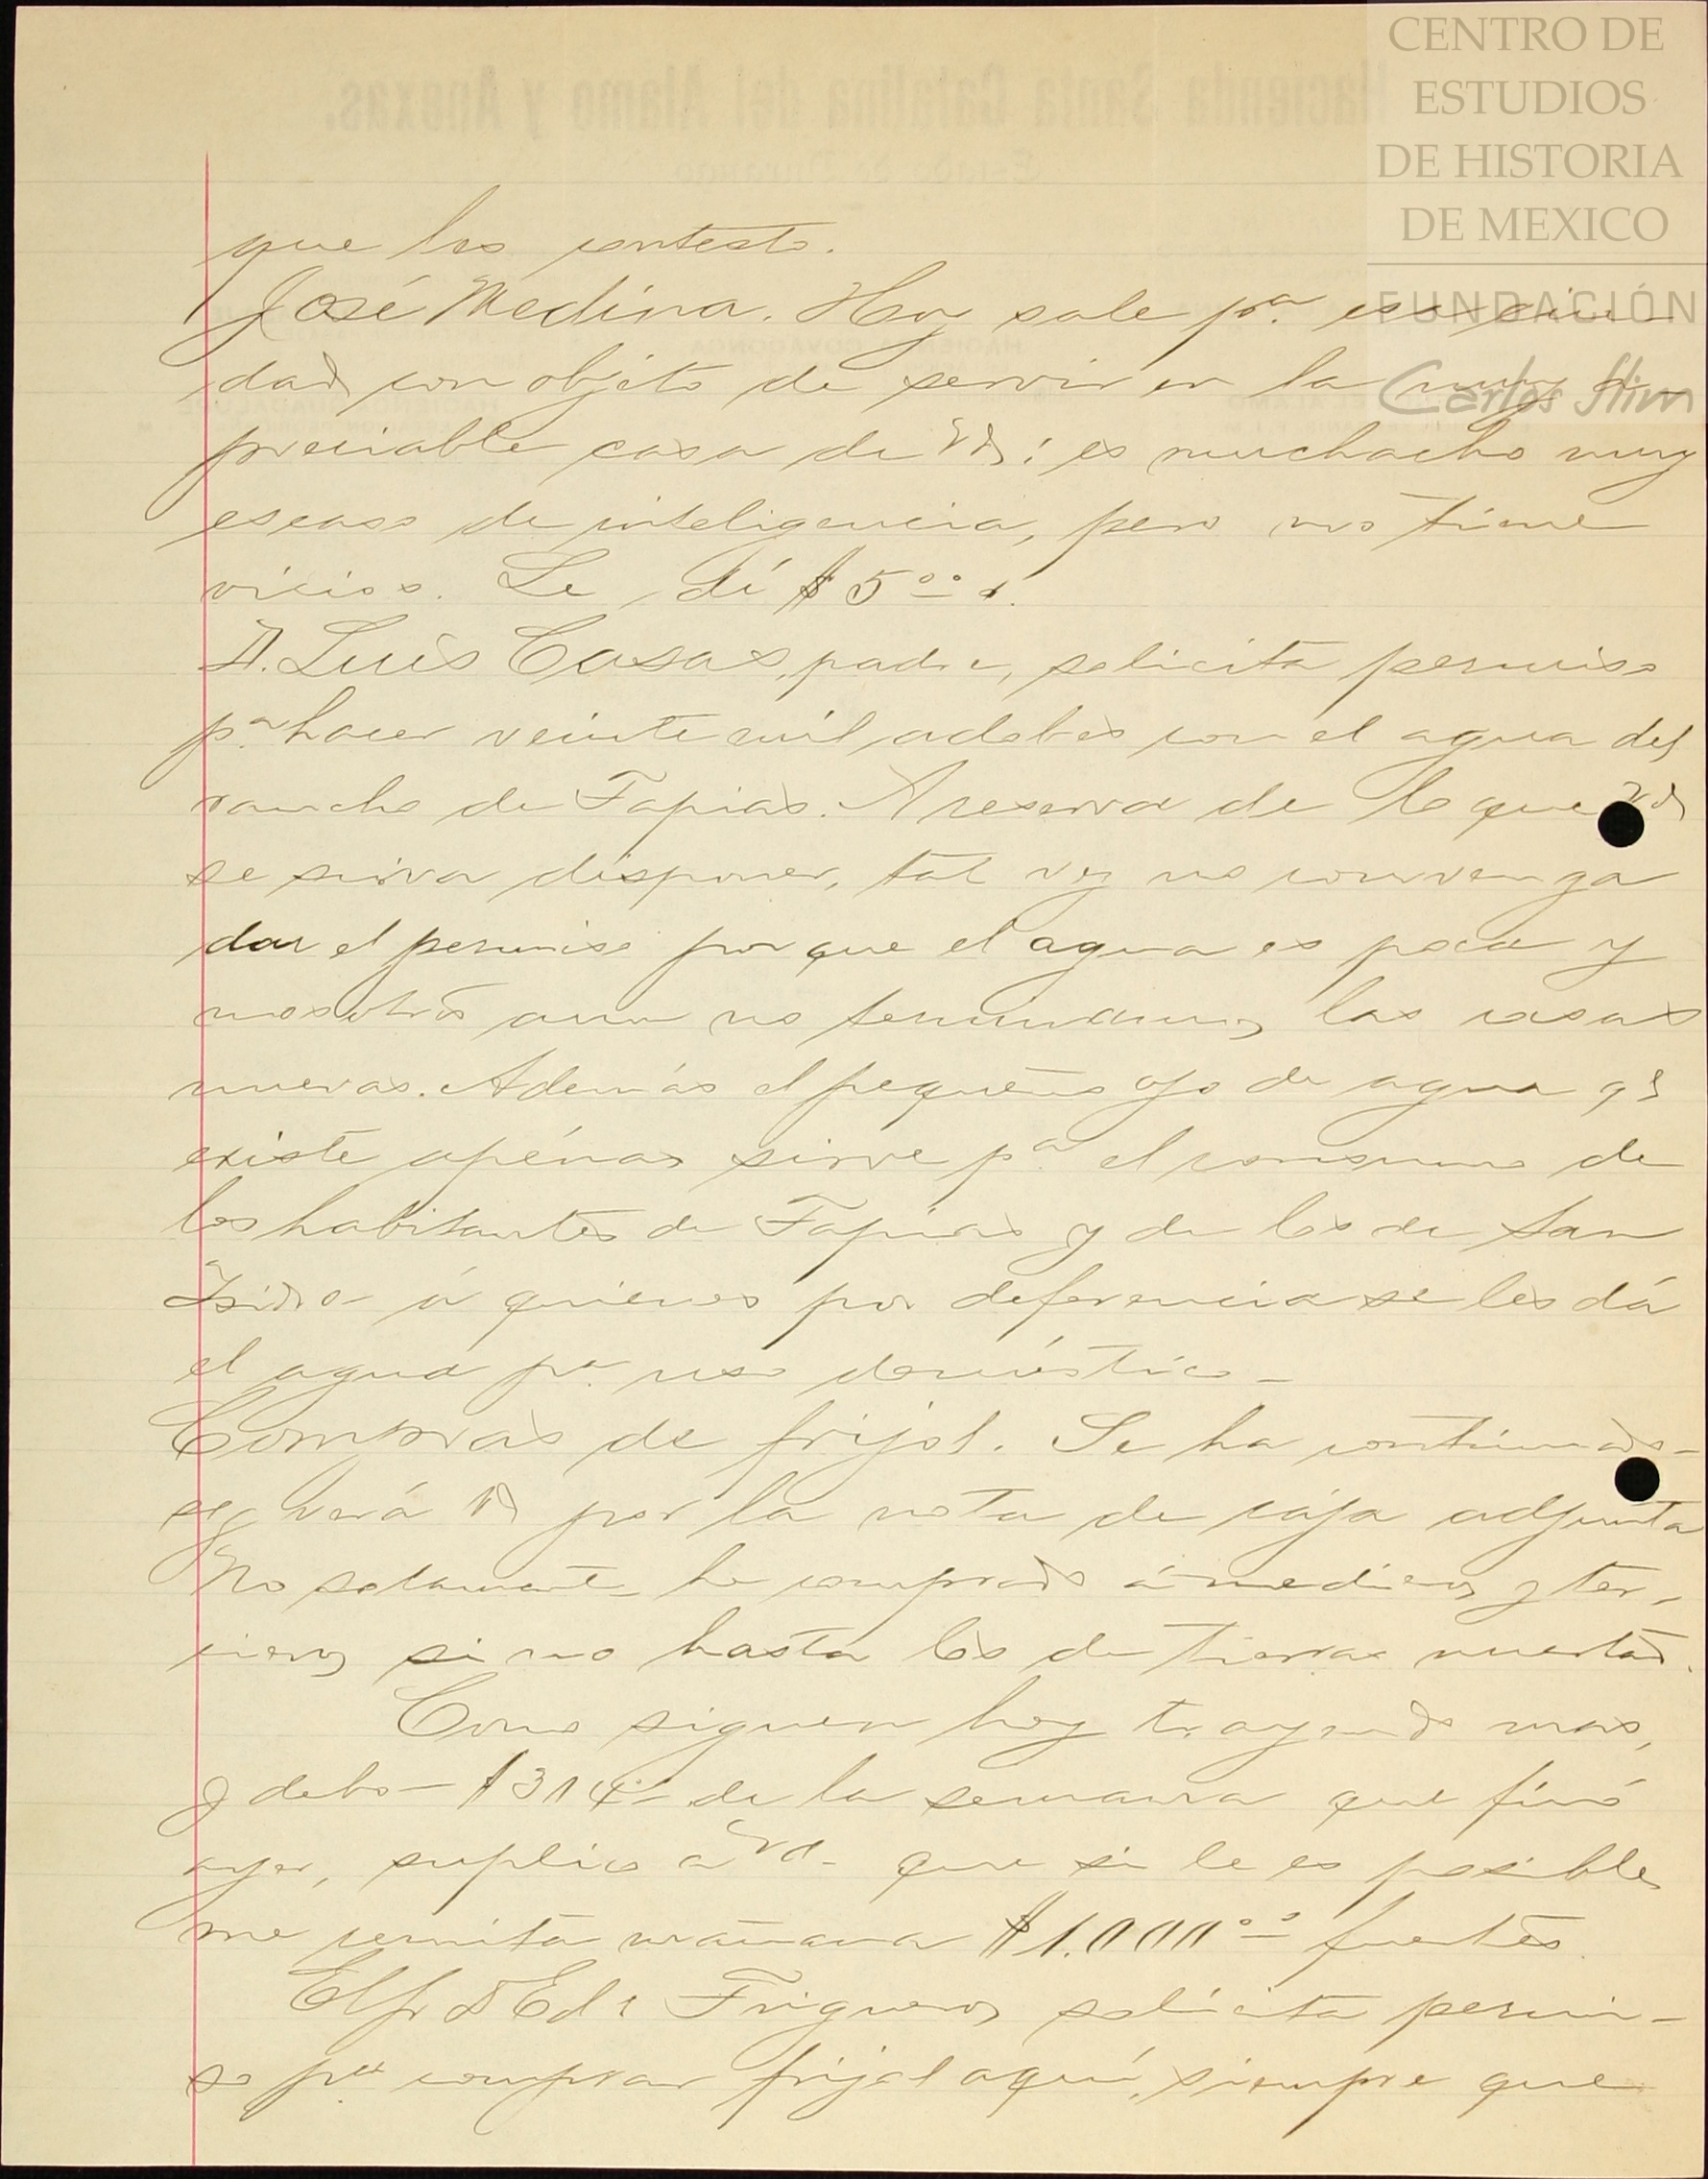 CENTRO DE
ESTUDIOS
DE HISTORIA
DE MEXICO
FUNDACIÓN
Carlos Slim
Hacienda Santa Catalina del Alamo y Anexas.
Estado de Durango
que los contesto.
José Medina. Hoy sale pª esa ciu-
dad con objeto de servir en la muy a-
preciable casa de Vd; es muchacho muy
escaso de inteligencia, pero no tiene
vicios. Le dí $5ºº
D. Luis Casas, padre, solicita permiso
pª hacer veinte mil adobes con el agua del
rancho de Tapias. A reserva de lo que Vd
se sirva disponer, tal vez no convenga
dar el permiso porque el agua es poca y
nosotros aun no terminamos las casas
nuevas. Además el pequeño ojo de agua qe
existe apénas sirve pª el consumo de
los habitantes de Tapias y de los de San
Isidro á quienes por deferencia se les dá
el agua pª uso doméstico-
Compras de frijol. Se ha continuado-
sg verá Vd por la nota de caja adjunta
No solamente he comprado á medieros y ter-
cieros si no hasta los de tierras muertas.
Como siguen hoy trayendo mas,
y debo- $314 de la semana que finó
ayer, suplico a Vd- que si le es posible
me remita mañana $1.000ºº fuertes.
El Sr D Edo Trigueros solicita permi-
so pª comprar frijol aquí, siempre que